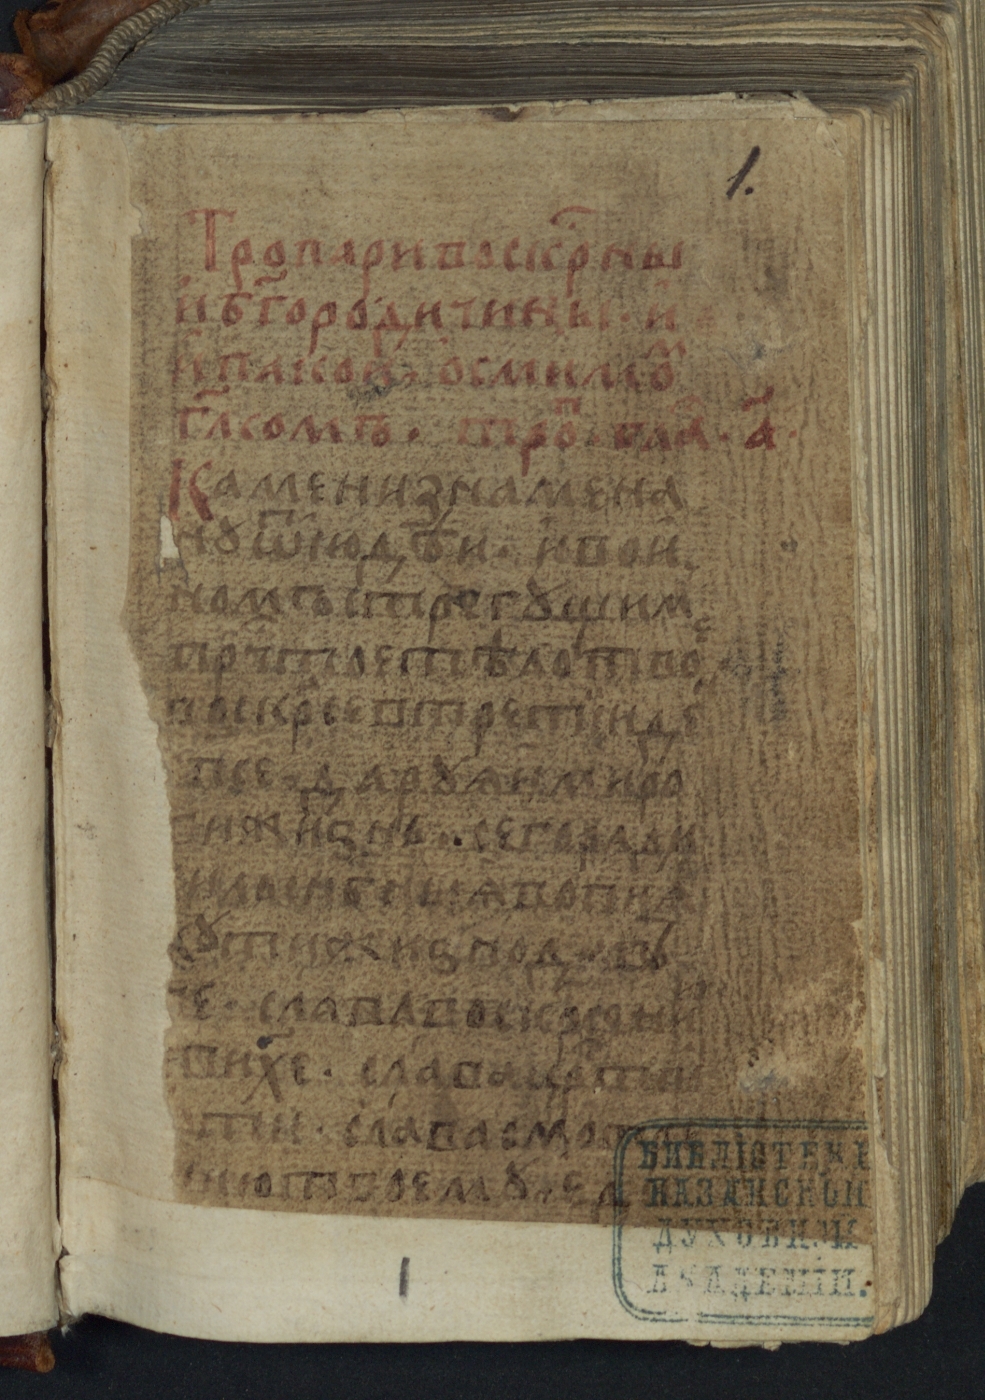 1.
Тропари воскрⷭ҇ны
и бг҃ородичины. и
ѵпакои, осмимъ
гл҃сомъ. троⷫ҇. гла. а҃.
Камени знамена
ну ѿ июдѣи. и вои
номъ стрегущим
прч҃тое тѣло твое
воскр҃се въ третии де
сп҃се. даруяи миро
ви жизнь. сего ради
силы нб҃ныя вопия
ху ти жизнодавч
е. слава воскр҃сни
ю ти х҃е. слава црⷭ҇тви
ю ти. слава смо
рению твоему. еди
БИБЛІОТЕКА
КАЗАНСКОЙ
ДУХОВНОЙ
АКАДЕМІИ.
1